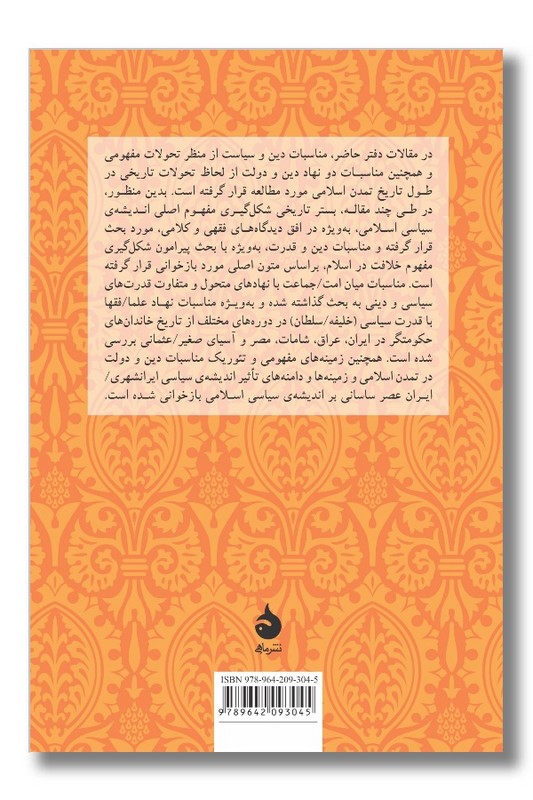 در مقالات دفتر حاضر، مناسبات دین و سیاست از منظر تحولات مفهومی
و همچنین مناسبـات دو نهاد دین و دولت از لحاظ تحولات تاریخی در
طـول تاریخ تمدن اسلامی مورد مطالعه قرار گرفته است. بدین منظور،
در طـی چند مقالـه، بستر تاریخی شکل‌گیـری مفهـوم اصلی انـدیشه‌ی
سیاسی اسـلامی، به‌ویژه در افق دیدگاه‌هـای فقهـی و کلامی، مورد بحث
قرار گرفته و مناسبات دین و قدرت، به‌ویژه با بحث پیرامون شکل‌گیری
مفهوم خلافت در اسلام، براساس متون اصلی مورد بازخوانی قرار گرفته
است. مناسبات میان امت/جماعت با نهادهای متحول و متفاوت قدرت‌های
سیاسی و دینی به بحث گذاشته شده و به‌ویـژه مناسبات نهـاد علما/فقها
با قدرت سیاسی (خلیفه/سلطان) در دوره‌های مختلف از تاریخ خاندان‌های
حکومتگر در ایران، عراق، شامات، مصر و آسیای صغیر/عثمانی بررسی
شده است. همچنین زمینه‌های مفهومی و تئوریک مناسبات دین و دولت
در تمدن اسلامی و زمینه‌ها و دامنه‌های تأثیر اندیشه‌ی سیاسی ایرانشهری/
ایـران عصر ساسانی بر اندیشه‌ی سیاسی اسـلامی بازخوانی شـده است.
نشرماهی
ISBN 978-964-209-304-5
9789642093045